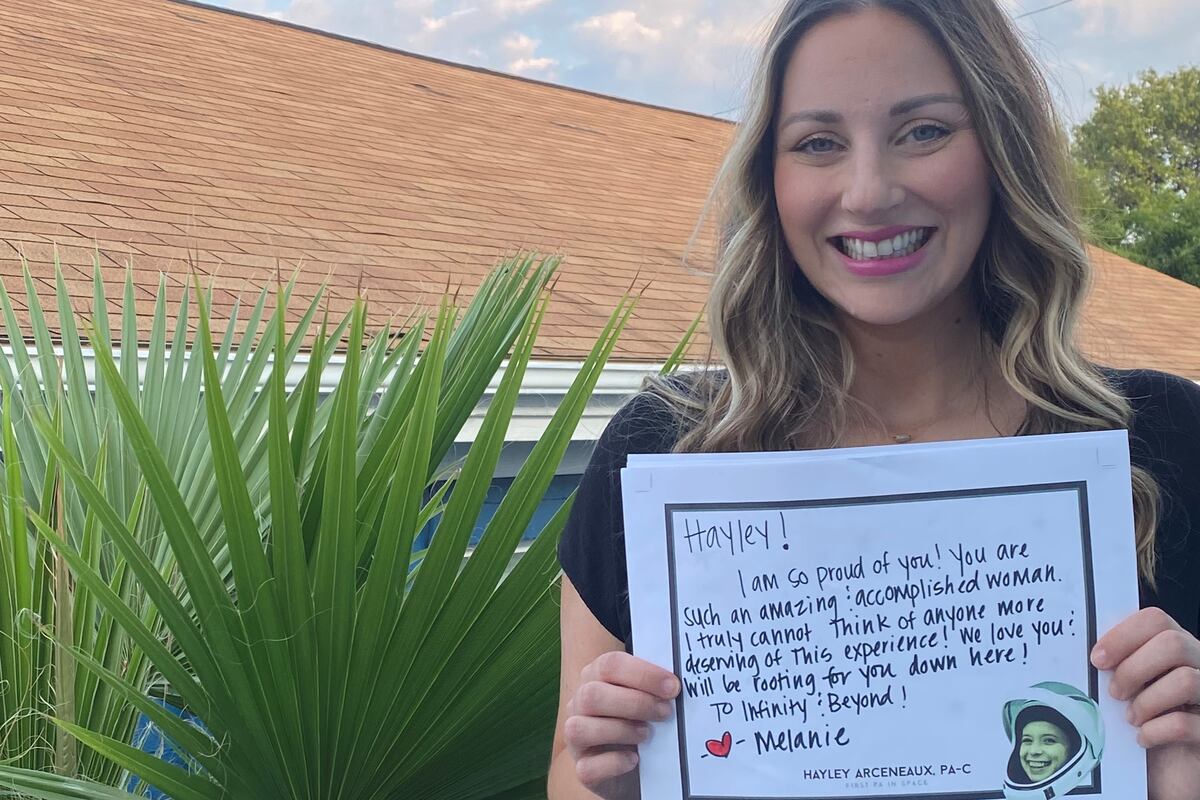 Hayley!
I am so proud of you! You are
such an amazing & accomplished woman.
I truly cannot think of anyone more
deserving of this experience! We love you &
will be rooting for you down here!
To Infinity & Beyond!
- Melanie
HAYLEY ARCENEAUX, PA-C
FIRST PA IN SPACE